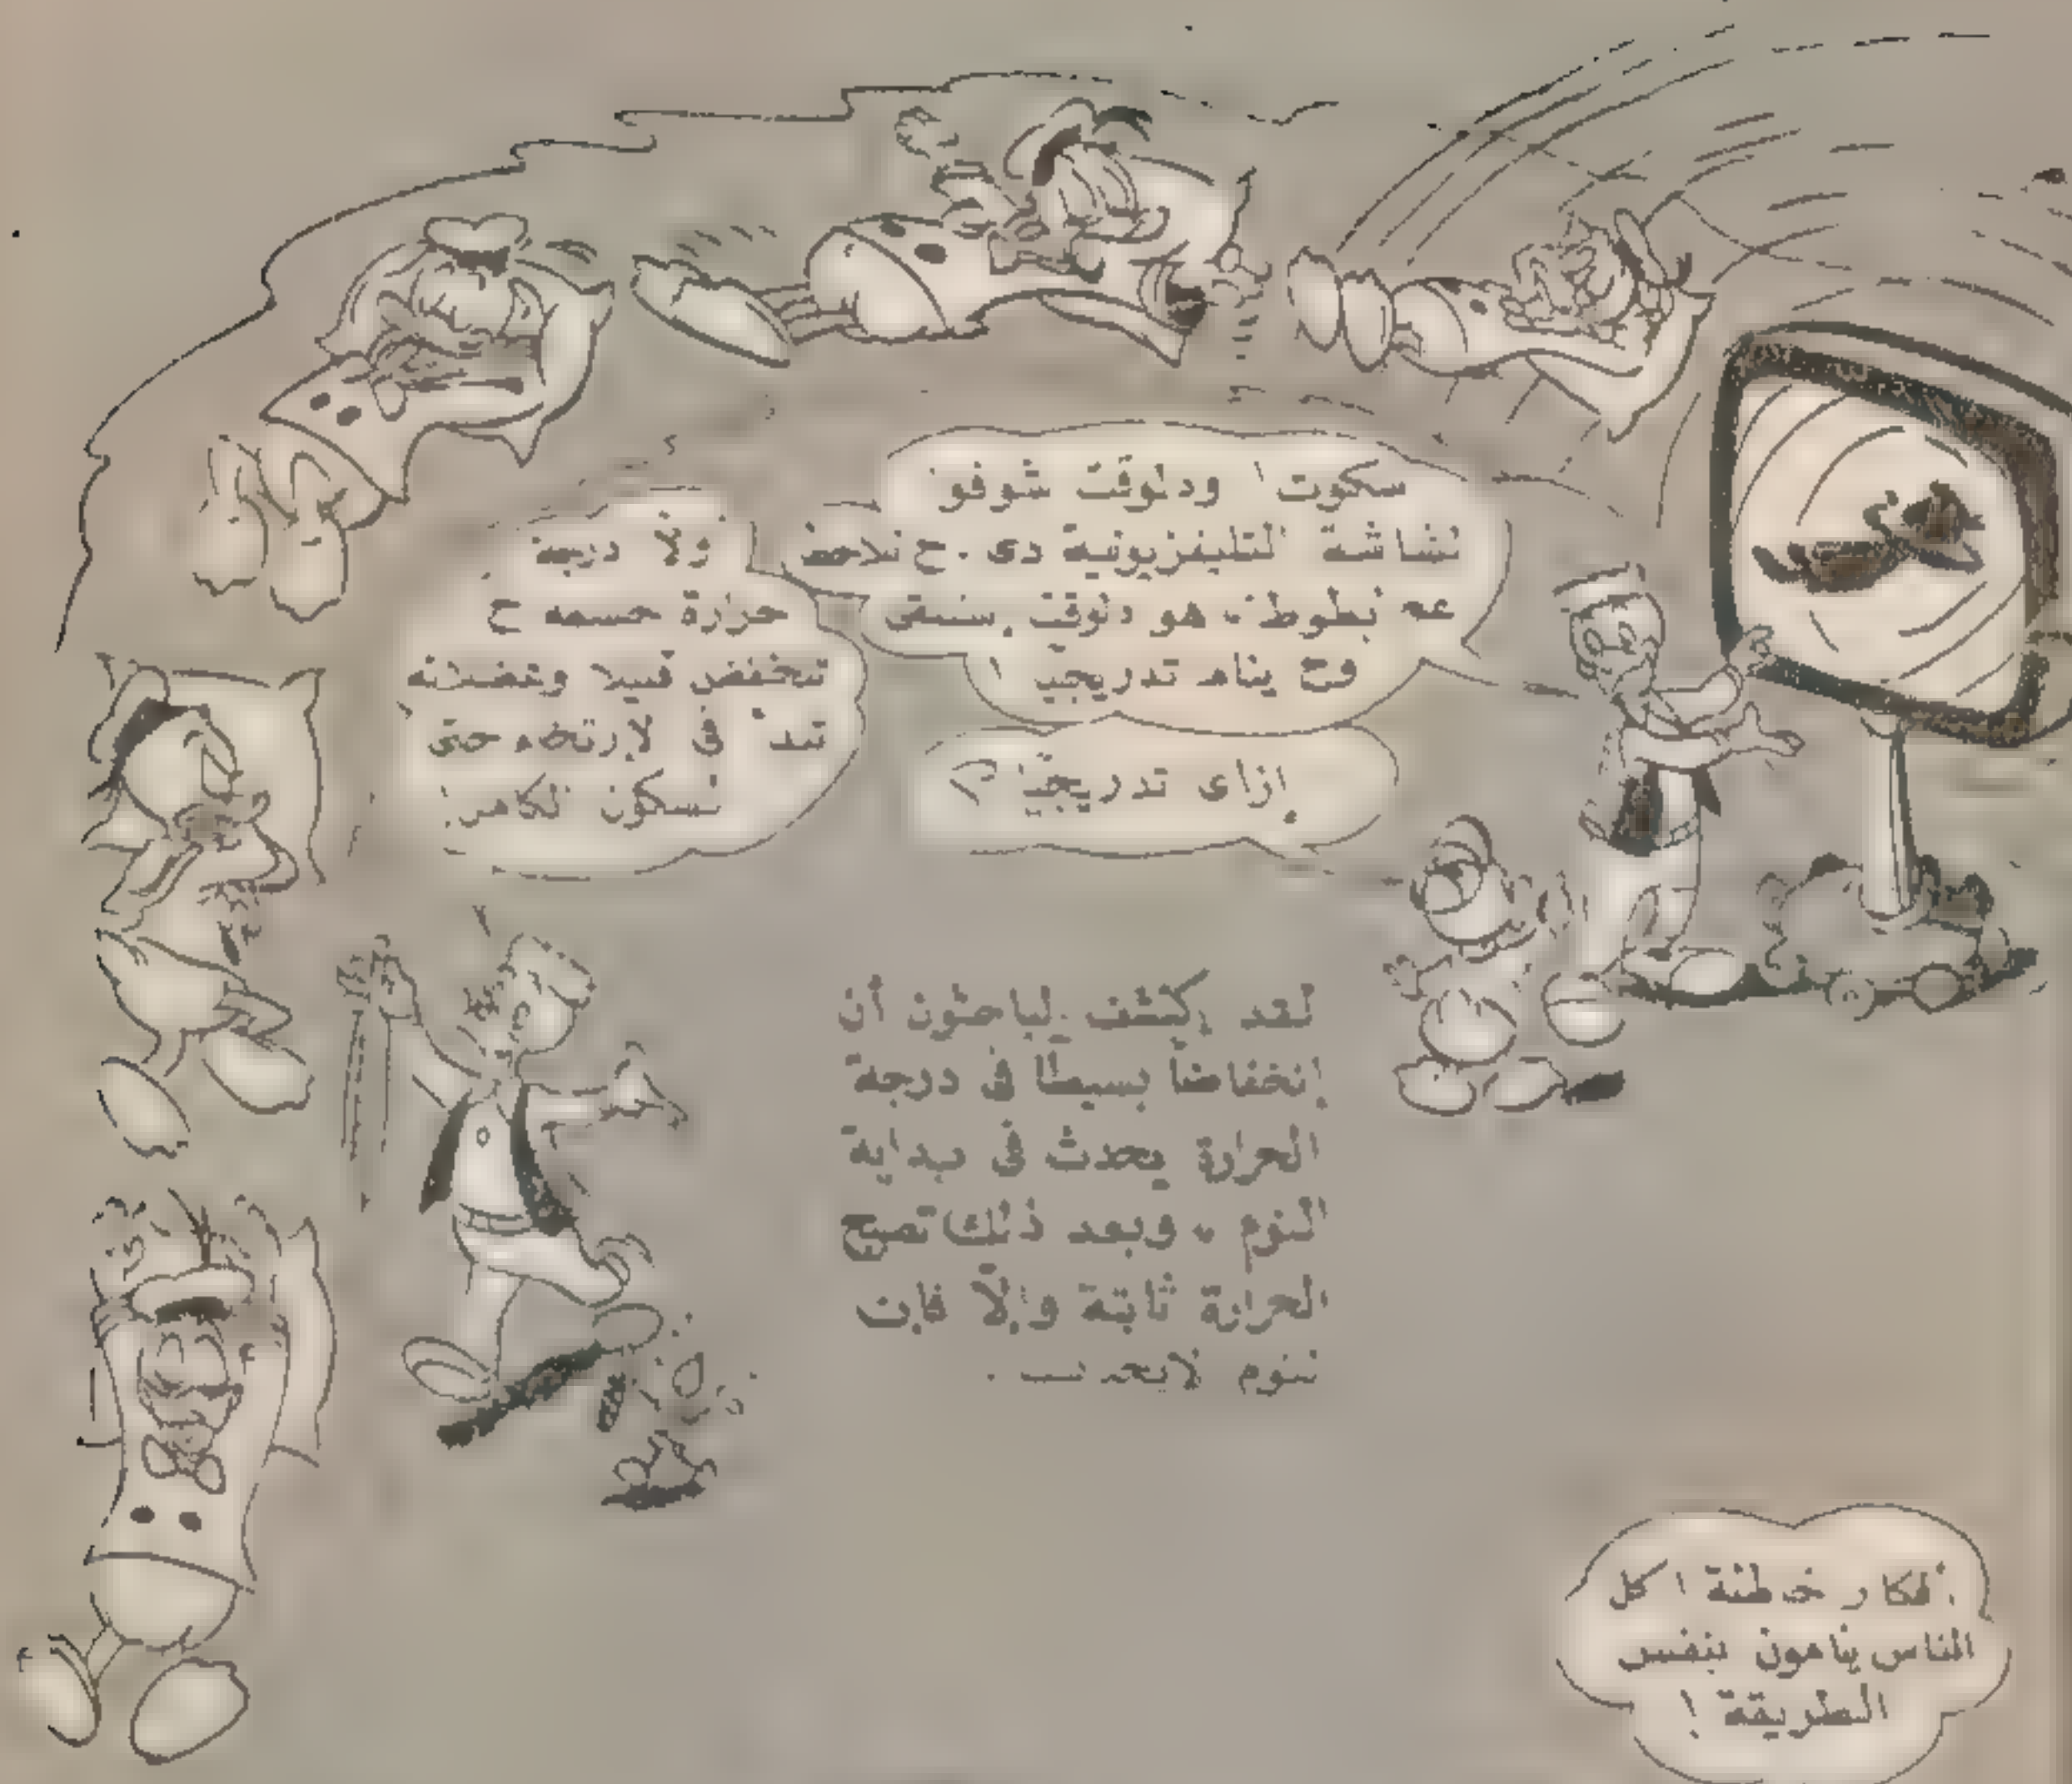 سكوت ! ودلوقت شوفو
الشاشة التليفزيونية دى . ح نلاحظ
عم بطوط .. هو دلوقت
وح ينام تدريجيًا !
إزاى تدريجيًا ؟
أولًا درجة
حرارة جسمه ح
تنخفض قليلا وعضلاته
تبدأ فى الإرتخاء حتى
السكون الكامل !
لقد إكتشف الباحثون أن
إنخفاضاً بسيطًا فى درجة
الحرارة يحدث فى بداية
النوم .. وبعد ذلك تصبح
الحرارة ثابتة وإلّا فإن
النوم لايحدث .
أفكار خاطئة ! كل
الناس ينامون بنفس
الطريقة !